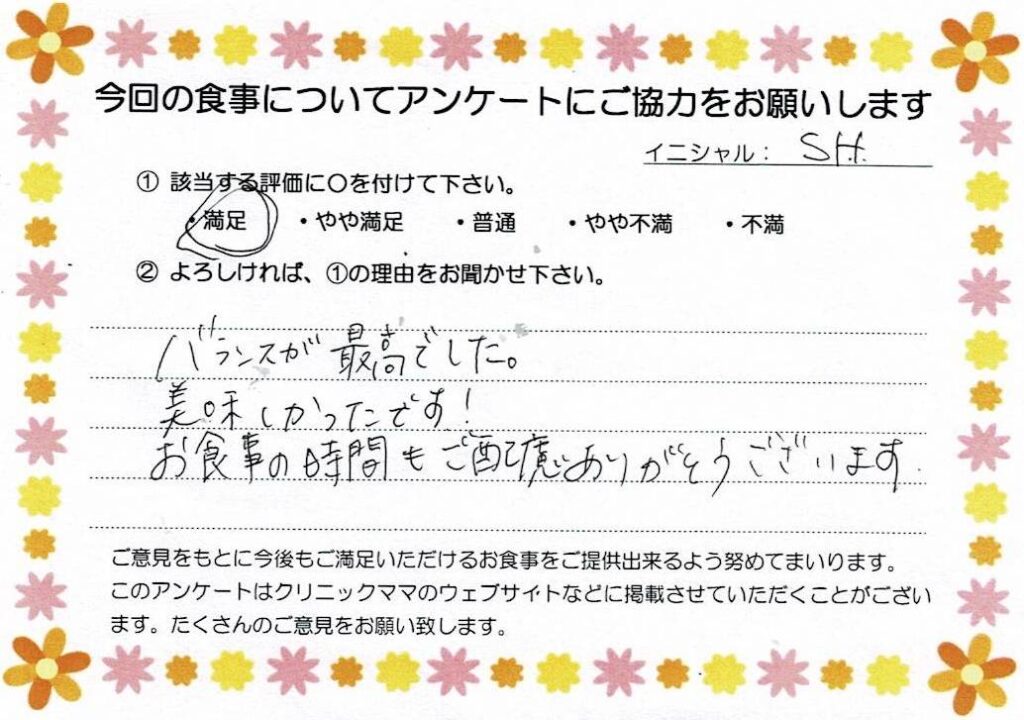 今回の食事についてアンケートにご協力をお願いします
イニシャル： S.H.
① 該当する評価に〇を付けて下さい。
・満足 ・やや満足 ・普通 ・やや不満 ・不満
② よろしければ、①の理由をお聞かせ下さい。
バランスが最高でした。
美味しかったです！
お食事の時間もご配慮ありがとうございます
ご意見をもとに今後もご満足いただけるお食事をご提供出来るよう努めてまいります。
このアンケートはクリニックママのウェブサイトなどに掲載させていただくことがござい
ます。たくさんのご意見をお願い致します。